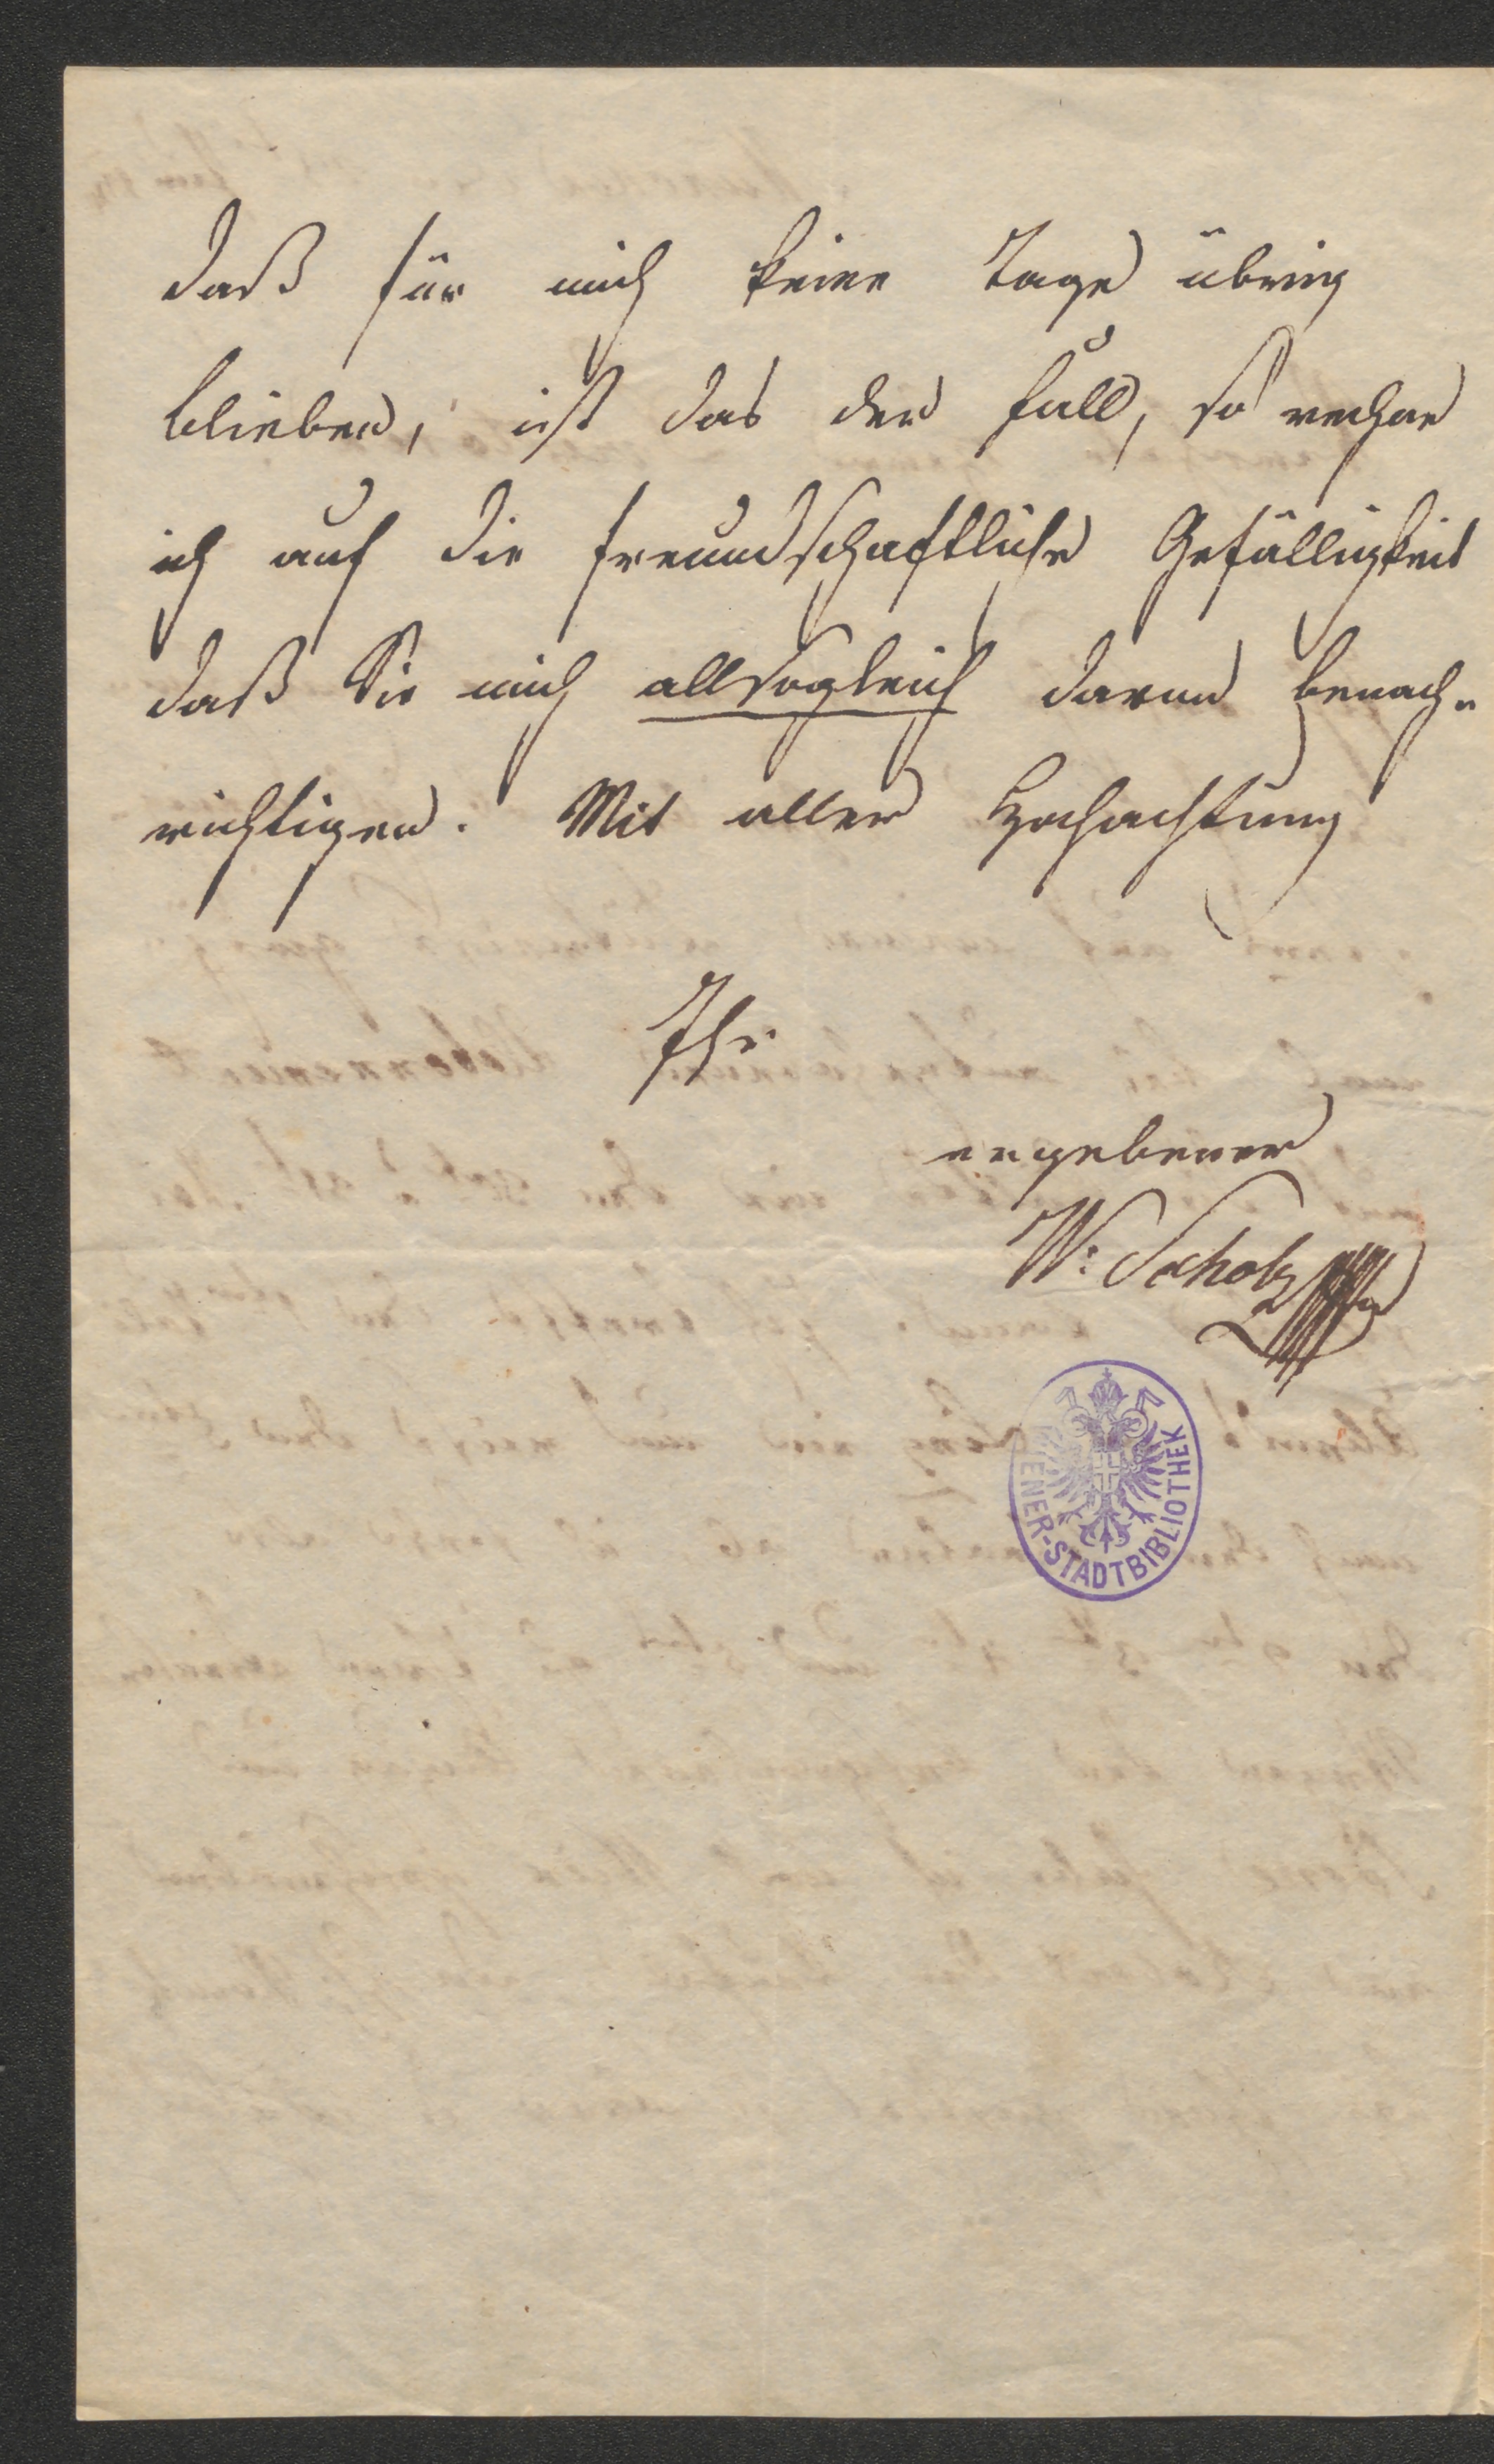 daß für mich keine Tage übrig
blieben, ist das der Fall, so rechne
ich auf die freundschaftliche Gefälligkeit
daß Sie mich allsogleich davon benach-
richtigen. Mit aller Hochachtung
Ihr
ergebener
W: Scholz
WIENER-STADTBIBLIOTHEK